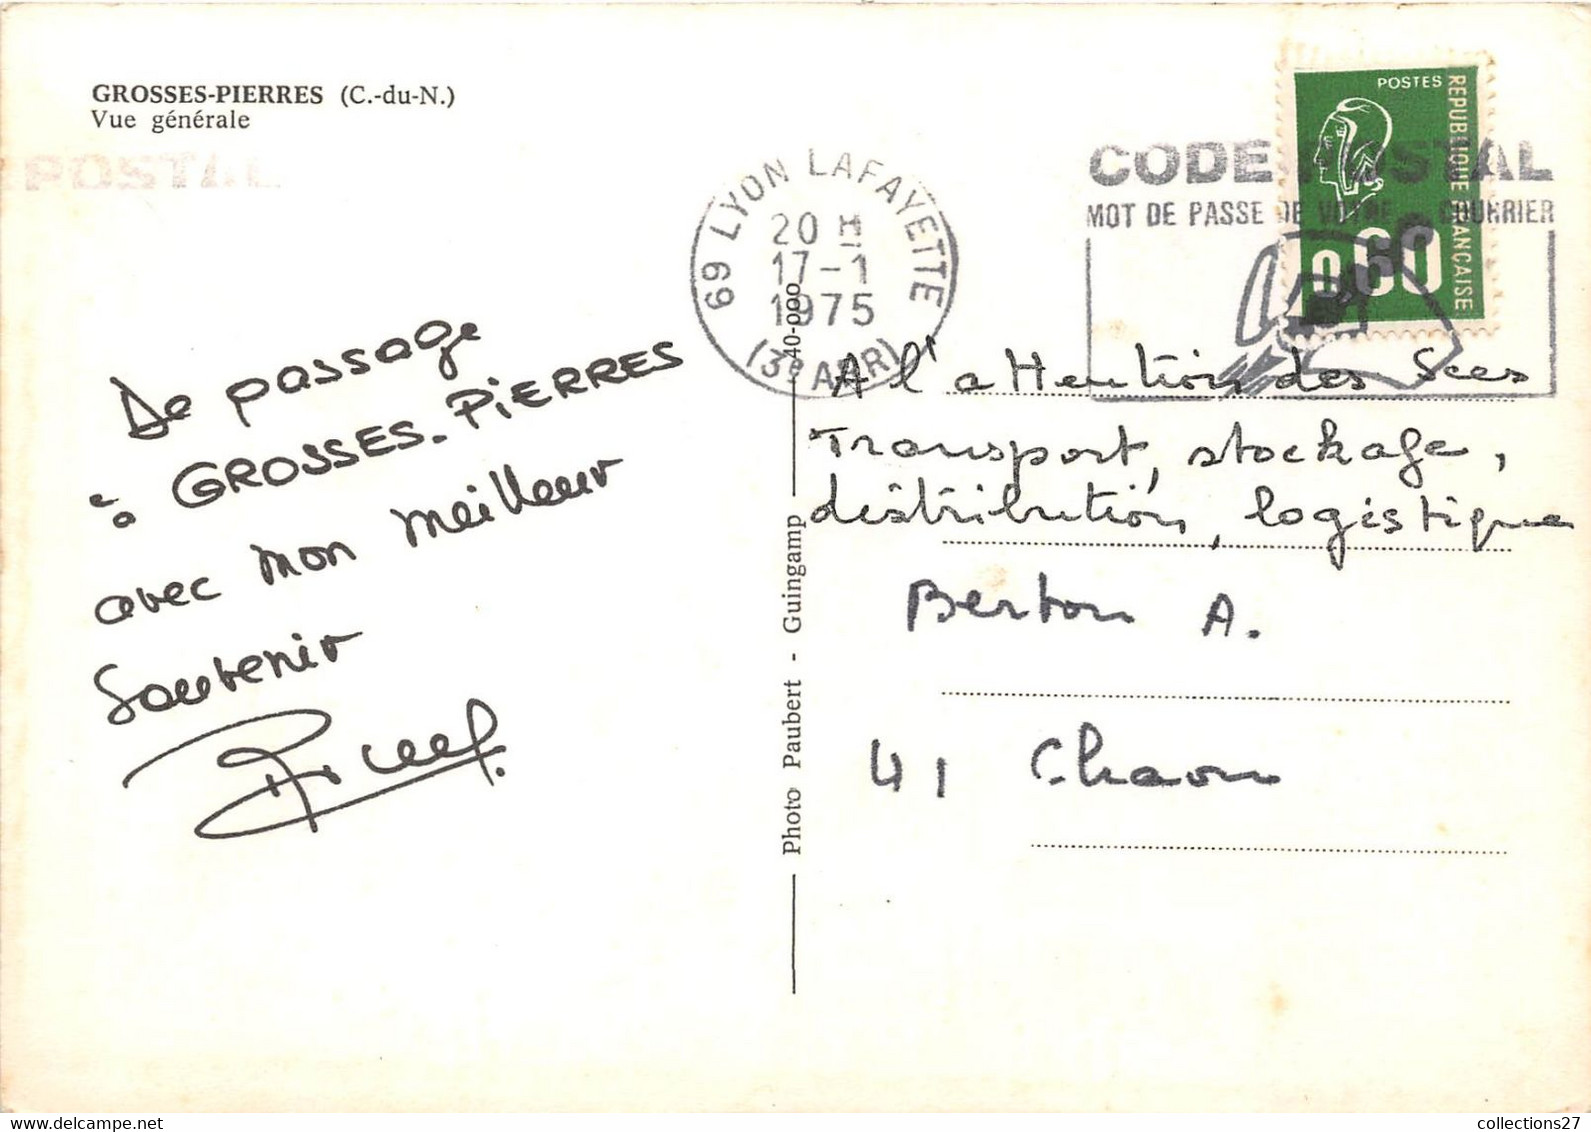 GROSSES-PIERRES (C.-du-N.)
Vue générale
POSTAL
69 LYON LAFAYETTE
20 H
17-1
1975
(3e ARR)
CODE POSTAL
MOT DE PASSE DE VOTRE COURRIER
POSTES
REPUBLIQUE FRANÇAISE
0,60
De passage
à GROSSES-PIERRES
avec mon meilleur
souvenir
Photo Paubert - Guingamp
40-000
A l'attention des Sces
Transport, stockage,
distribution, logistique
Berton A.
41 Chaon
www.delcampe.net
collections27